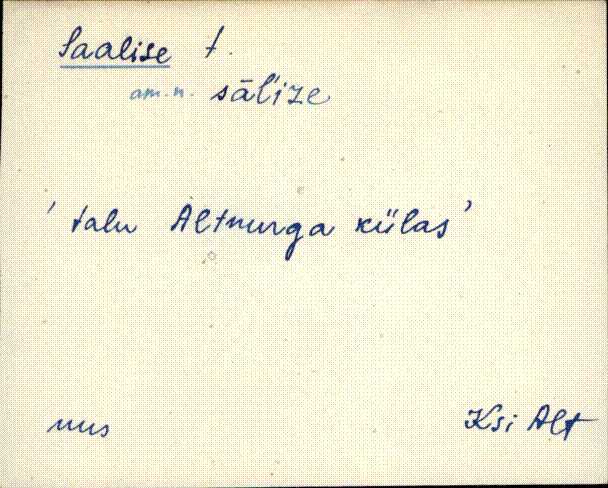 Saalise t.
am.n. sāl'ize
' talu Altnurga külas '
uus
Ksi Alt